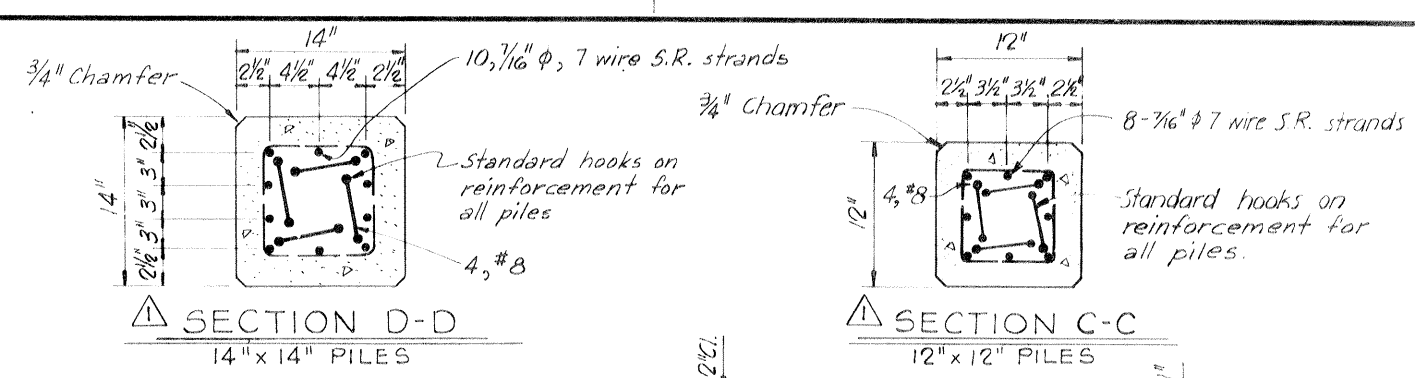 14"
3/4" Chamfer
2½" 4½" 4½" 2½"
10, 7/16" Φ, 7 wire S.R. strands
14"
2½" 3" 3" 3" 2½"
Standard hooks on
reinforcement for
all piles
4, #8
1 SECTION D-D
14" x 14" PILES
12"
2½" 3½" 3½" 2½"
3/4" Chamfer
8-7/16" Φ 7 wire S.R. strands
12"
4, #8
Standard hooks on
reinforcement for
all piles.
1 SECTION C-C
12" x 12" PILES
2"Cl.